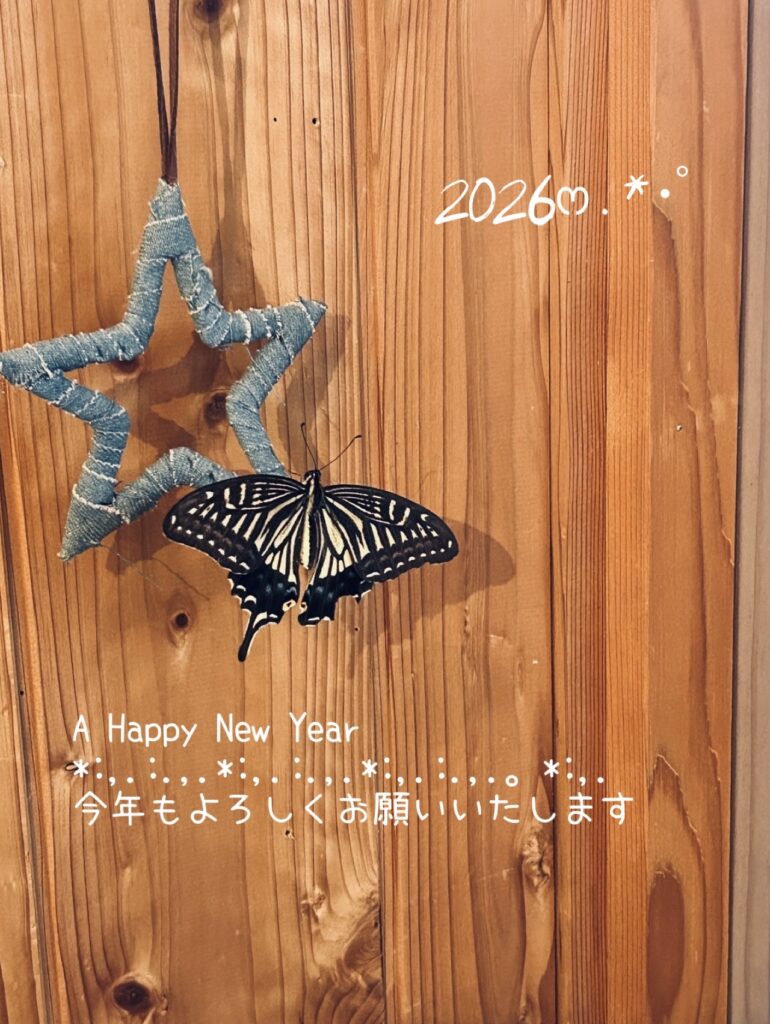 2026ෆ.*･ﾟ
A Happy New Year
*:,.:.,.*:,.:.,.*:,.:.,.。*:,.
今年もよろしくお願いいたします